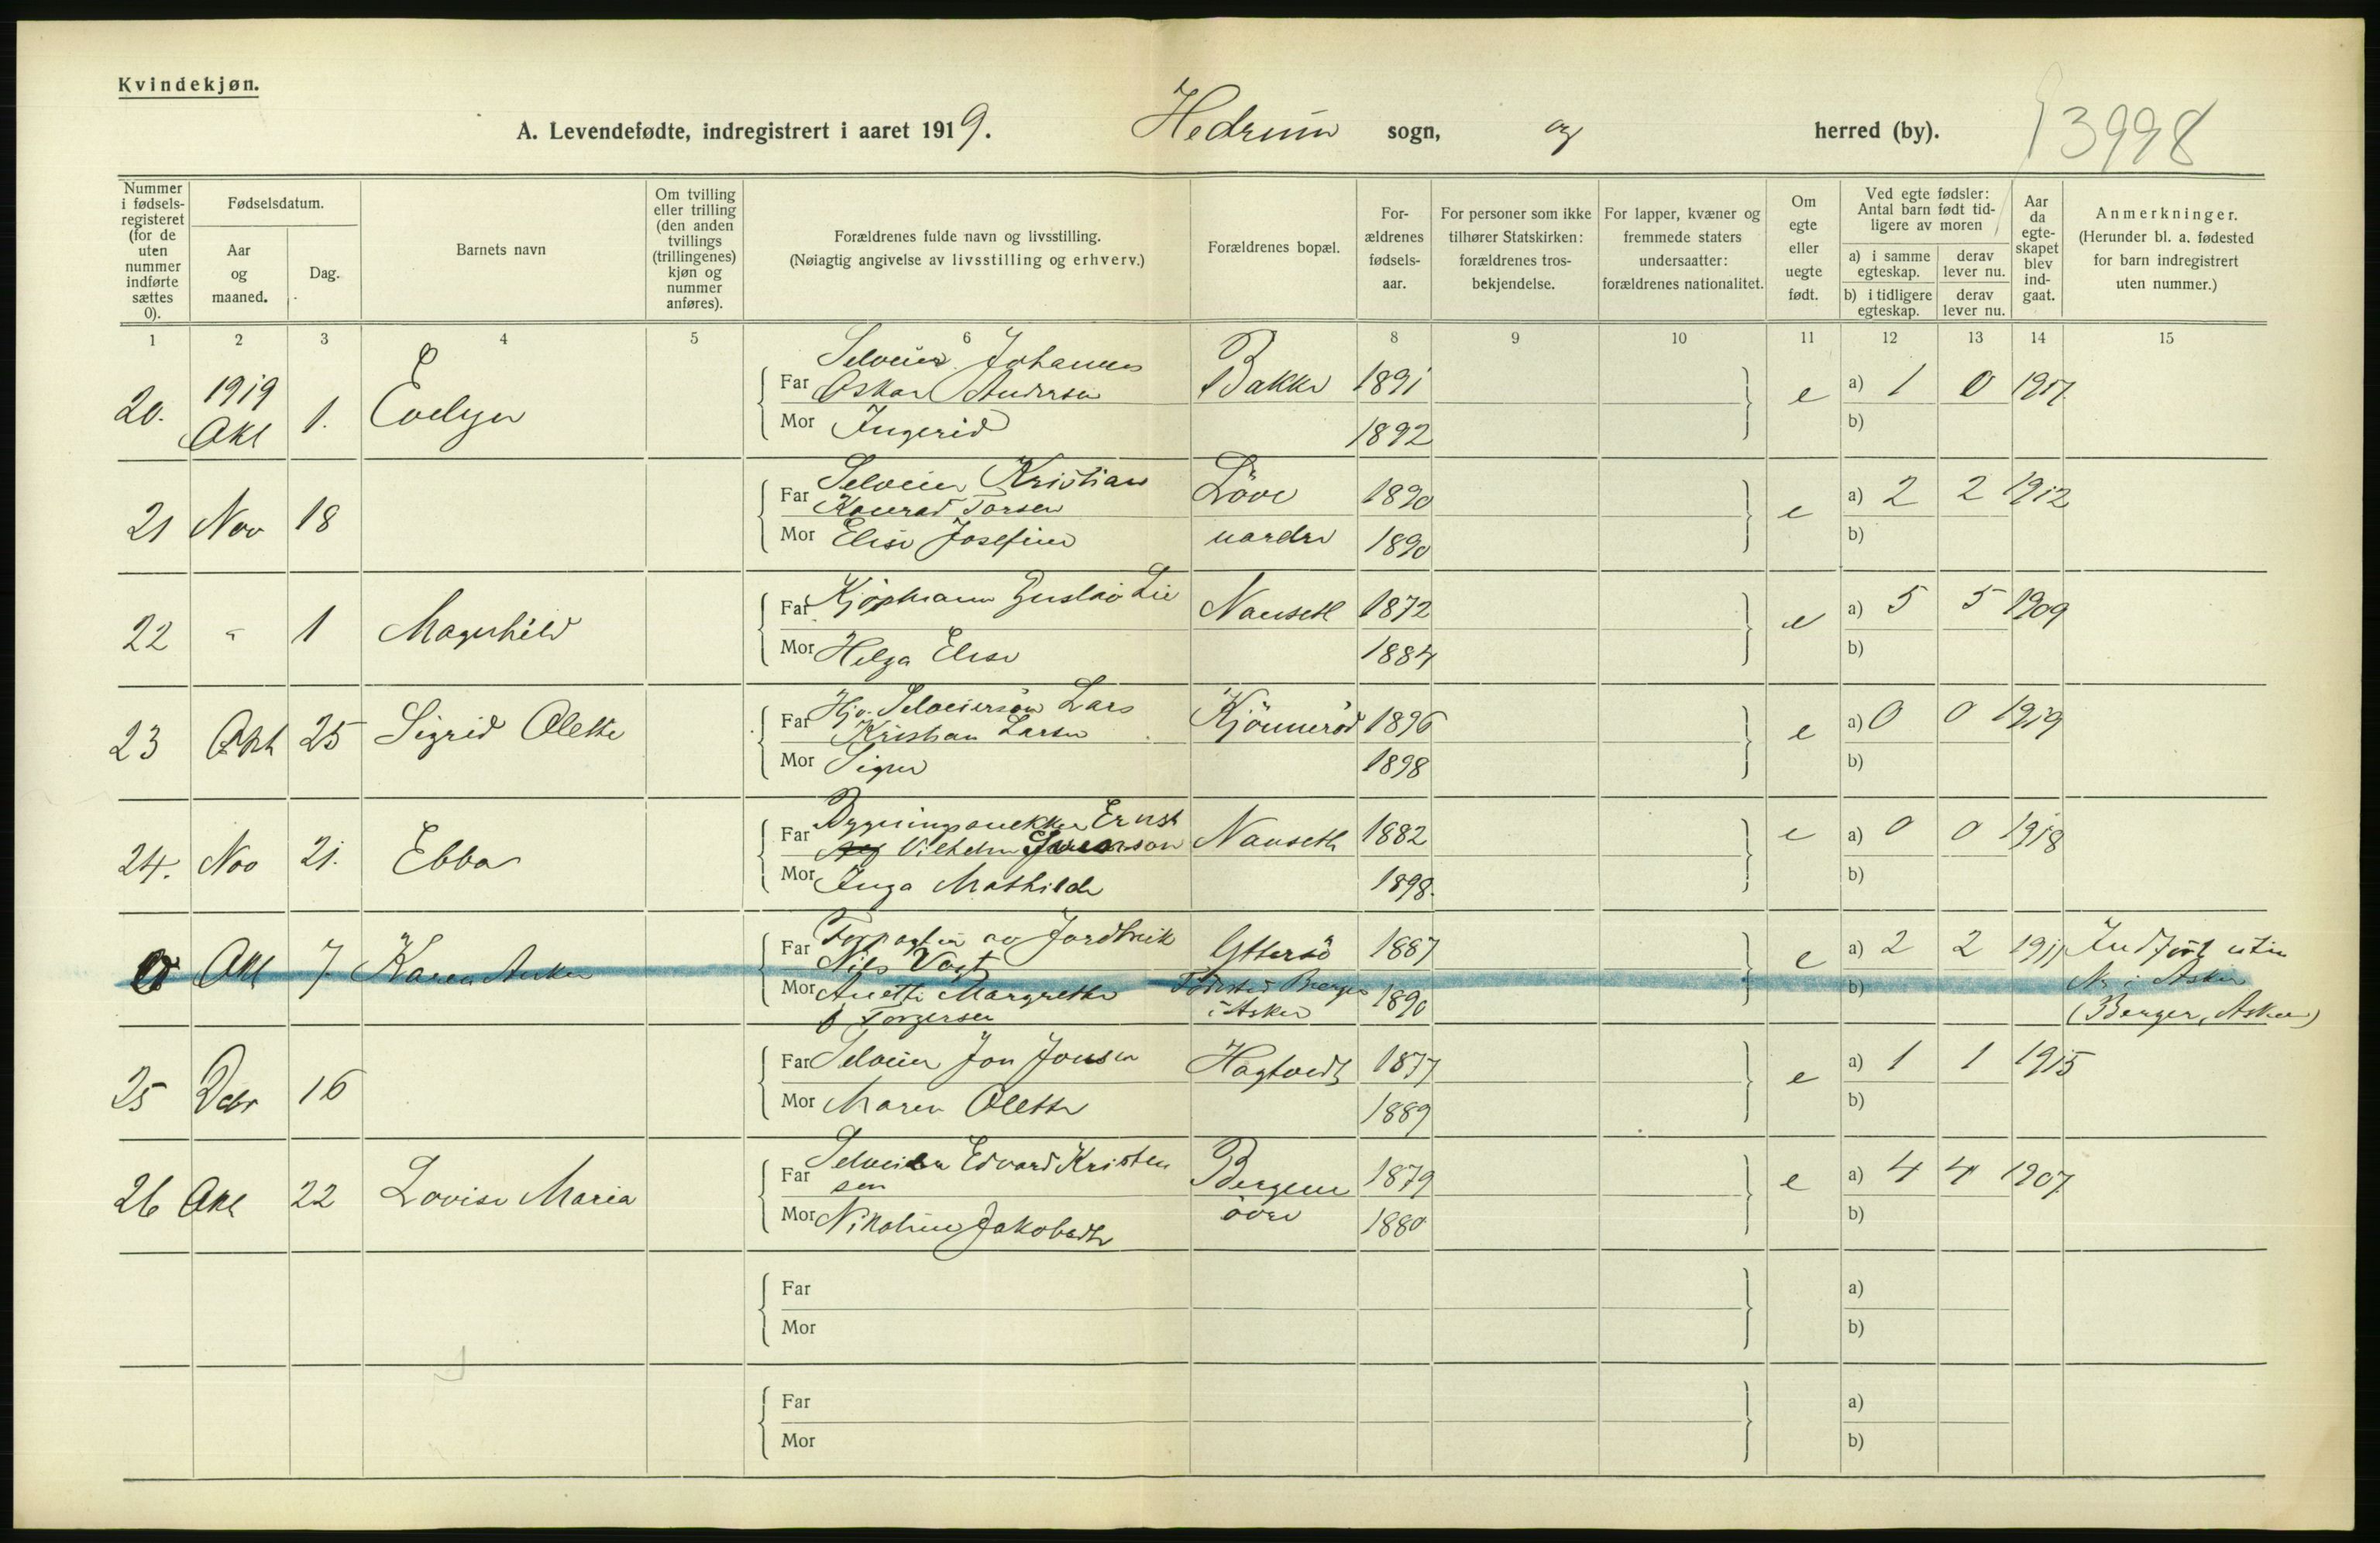 Kvindekjøn.
A. Levendefødte, indregistrert i aaret 1919. Hedrum sogn, og herred (by). 3998
Nummer i fødsels-registeret (for de uten nummer indførte sættes 0).
Fødselsdatum.
Aar og maaned.
Dag.
Barnets navn
Om tvilling eller trilling (den anden tvillings (trillingenes) kjøn og nummer anføres).
Forældrenes fulde navn og livsstilling.
(Nøiagtig angivelse av livsstilling og erhverv.)
Forældrenes bopæl.
For-ældrenes fødsels-aar.
For personer som ikke tilhører Statskirken: forældrenes tros-bekjendelse.
For lapper, kvæner og fremmede staters undersaatter: forældrenes nationalitet.
Om egte eller uegte født.
Ved egte fødsler: Antal barn født tid-ligere av moren
a) i samme egteskap.
derav lever nu.
b) i tidligere egteskap.
derav lever nu.
Aar da egte-skapet blev ind-gaat.
Anmerkninger.
(Herunder bl. a. fødested for barn indregistrert uten nummer.)
1 2 3 4 5 6 8 9 10 11 12 13 14 15
Selveier Johannes
20. 1919 Okt 1. Evelyn Far Oskar Andersen Bakke 1891 e a) 1 0 1917
Mor Ingerid 1892 b)
Selveier Kristian Löve
21 Nov 18 Far Konrad Torsen 1890 e a) 2 2 1912
Mor Elise Josefine nordre 1890 b)
22 " 1 Magnhild Far Kjøpmann Gustav Lie Nanseth 1872 e a) 5 5 1909
Mor Helga Elise 1884 b)
Hj.v. Selveiersön Lars
23 Okt 25 Sigrid Olette Far Kristian Larsen Kjönneröd 1896 e a) 0 0 1919
Mor Signe 1898 b)
Bygningssnekker Ernst
24. Nov 21. Ebba Far Vilhelm Nanseth 1882 e a) 0 0 1918
Mor Inga Mathilde 1898. b)
Forpagter av Jordbruk
0 Okt 7 Karen Anker Far Nils Vogt Yttersö 1887 e a) 2 2 1911 Indfört uten
Mor Anette Margrethe Födested Berger 1890 b) Nr. i Asker
f Torgersen i Asker (Berger, Asker)
25 Debr 16 Far Selveier Jon Jonsen Hagtvedt 1877 e a) 1 1 1915
Mor Maren Olette 1889 b)
Selveier Edvard Kristen
26 Okt 22 Lovise Maria Far sen Bergene 1879 e a) 4 4 1907
Mor Nikoline Jakobedte övre 1880 b)
Far a)
Mor b)
Far a)
Mor b)